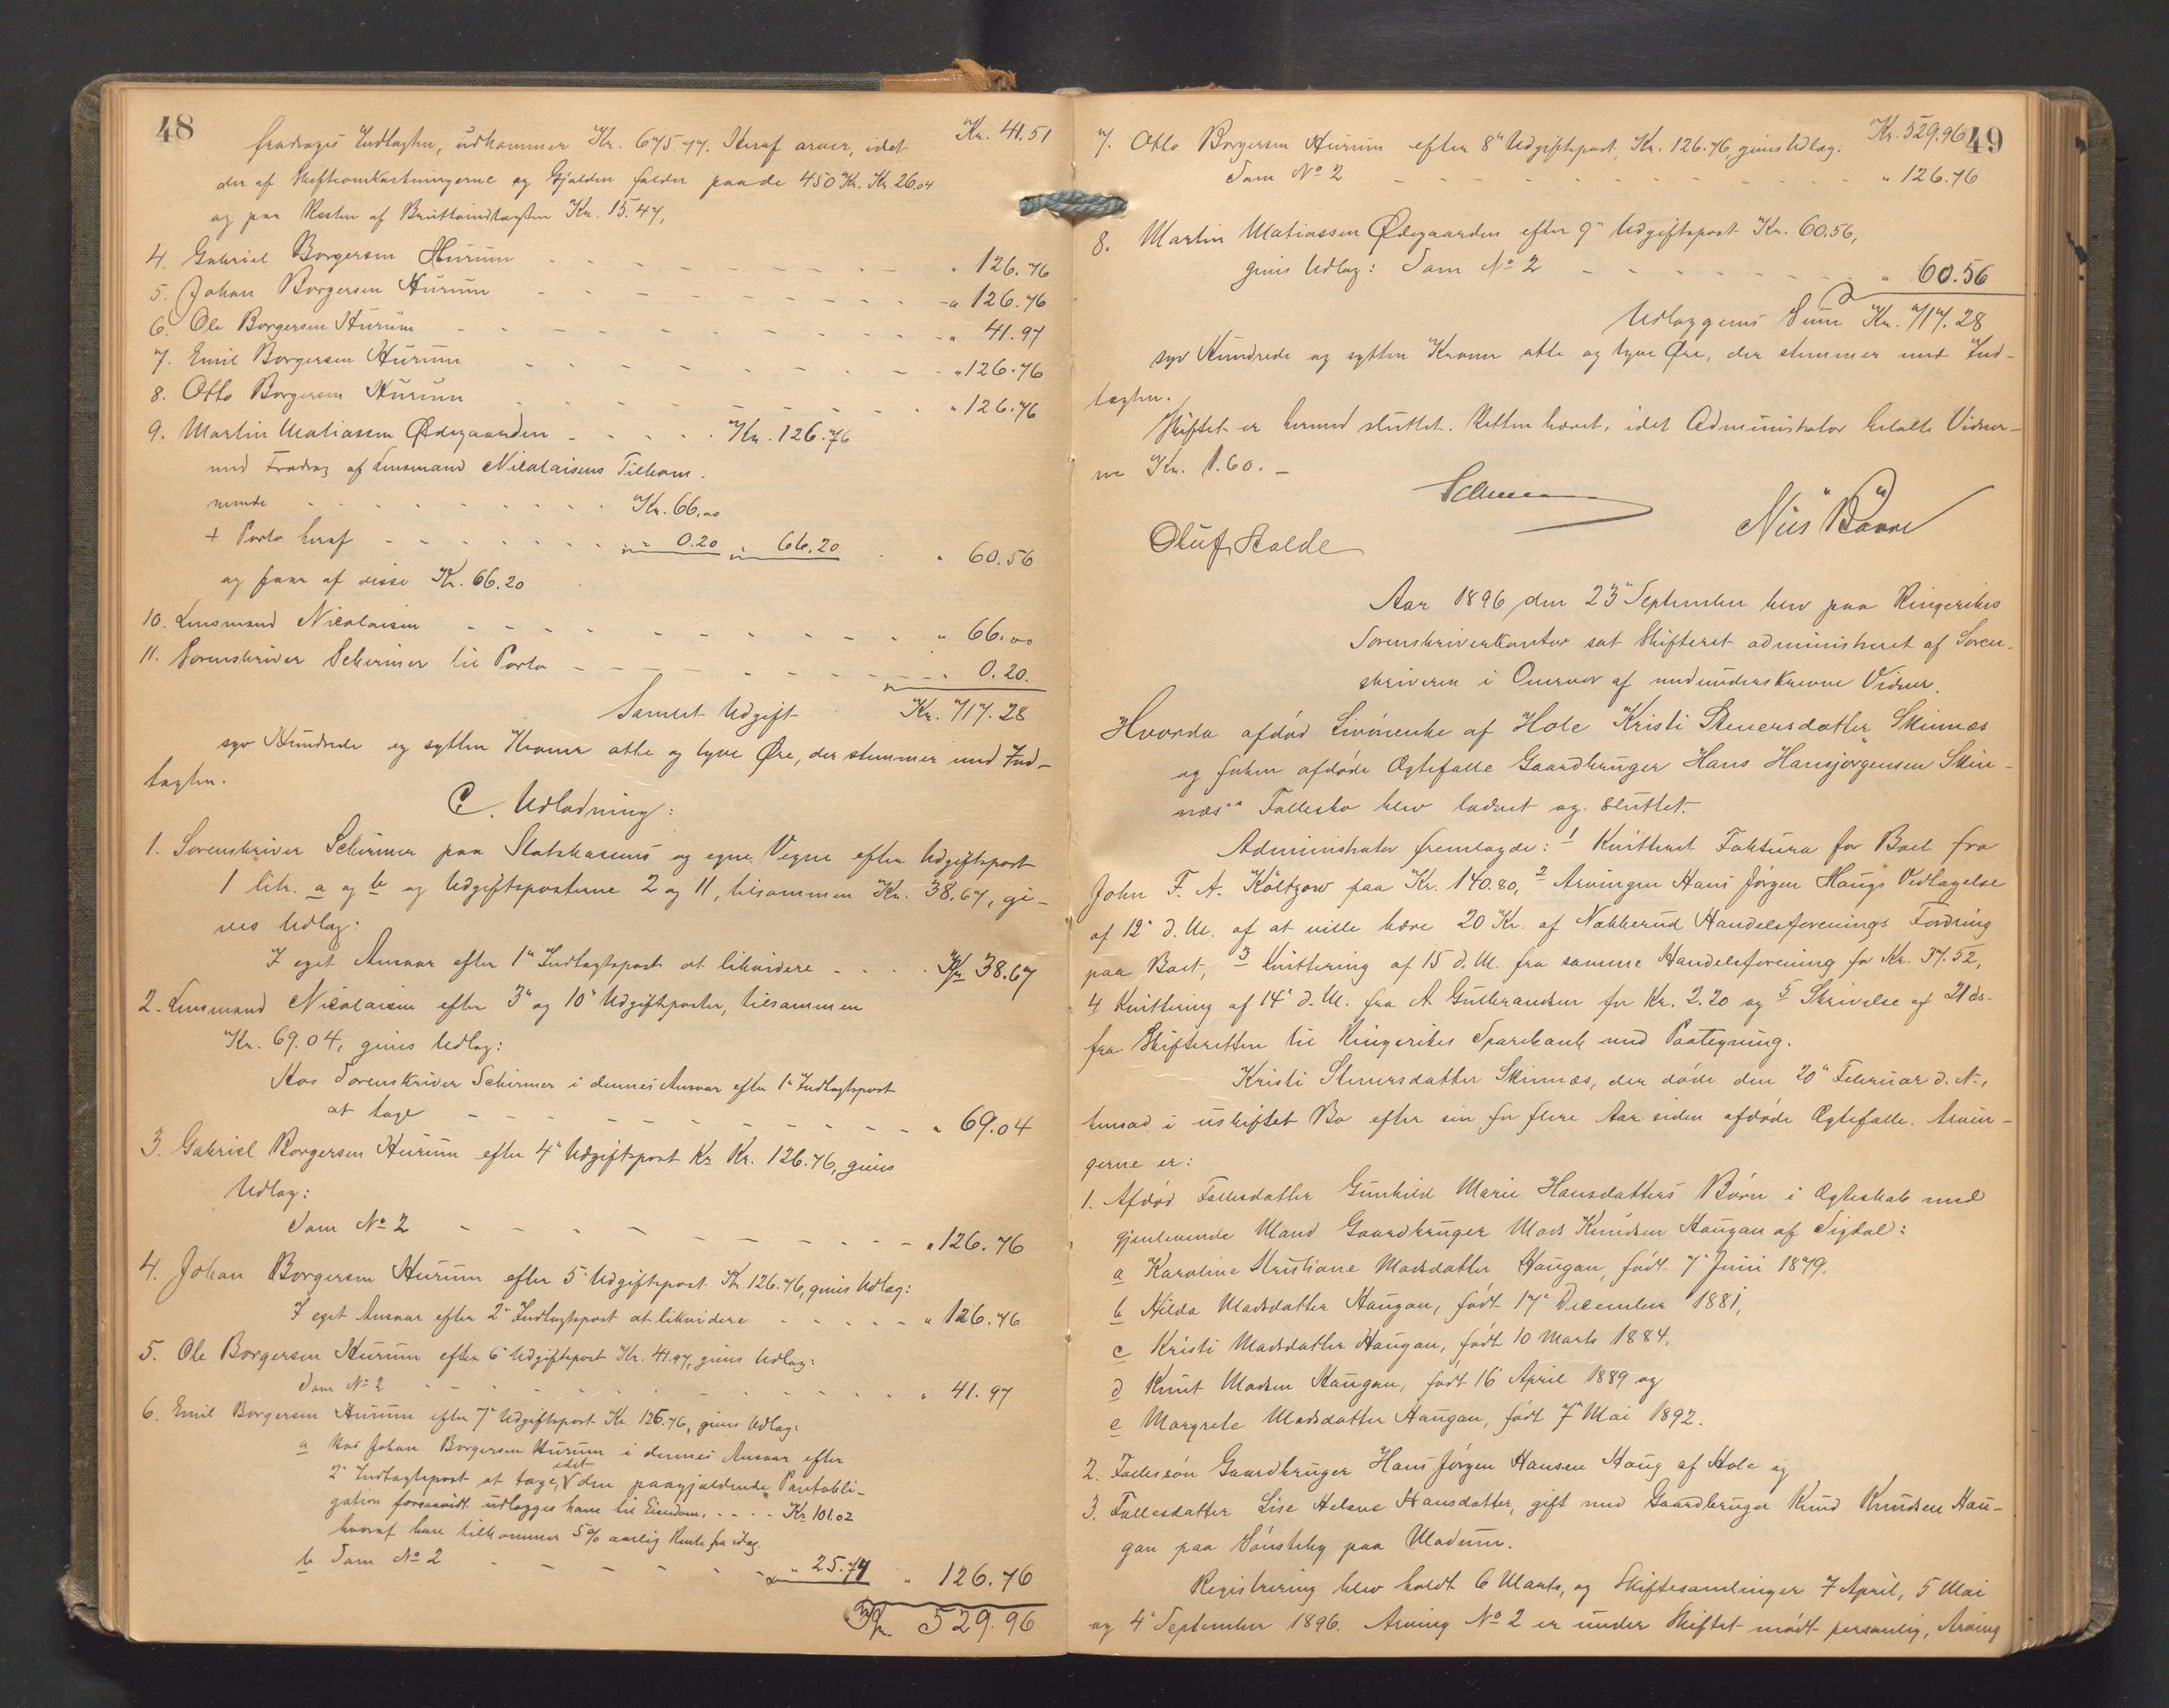 48
fradrages Indtægten, udkommer Kr. 675.77. Heraf arver, idet Kr. 41.51
der af Skifteomkostningerne og Gjælden falder paa de 450 Kr. Kr. 26.04
og paa Resten af Bruttoindtægten Kr. 15.47,
4. Gabriel Borgersen Hurum - - - " 126.76
5. Johan Borgersen Hurum - - - " 126.76
6. Ole Borgersen Hurum - - - " 41.97
7. Emil Borgersen Hurum - - - " 126.76
8. Otto Borgersen Hurum - - - " 126.76
9. Martin Matiassen Ødegaarden - - - Kr. 126.76
med Fradrag af Lensmand Nicolaisens Tilkom-
mende - - - Kr. 66.00
+ Porto heraf - - - " 0.20 " 66.20 - " 60.56
og faar af disse Kr. 66.20
10. Lensmand Nicolaisen - - - " 66.00
11. Sorenskriver Schirmer til Porto - - - " 0.20.
Samlet Udgift Kr. 717.28
syv Hundrede og sytten Kroner otte og tyve Øre, der stemmer med Ind-
tægten.
C. Udlodning:
1. Sorenskriver Schirmer paa Statskassens og egne Vegne efter Udgiftspost
1 litr. a og b og Udgiftsposterne 2 og 11, tilsammen Kr. 38.67, gi-
ves Udlæg:
I eget Ansvar efter 1ste Indtægtspost at likvidere - - - Kr. 38.67
2. Lensmand Nicolaisen efter 3die og 10de Udgiftsposter, tilsammen
Kr. 69.04, gives Udlæg:
Hos Sorenskriver Schirmer i dennes Ansvar efter 1ste Indtægtspost
at tage - - - " 69.04
3. Gabriel Borgersen Hurum efter 4de Udgiftspost Kr Kr. 126.76, gives
Udlæg:
Som No 2 - - - " 126.76
4. Johan Borgersen Hurum efter 5te Udgiftspost Kr. 126.76, gives Udlæg:
I eget Ansvar efter 2den Indtægtspost at likvidere - - - " 126.76
5. Ole Borgersen Hurum efter 6te Udgiftspost Kr. 41.97, gives Udlæg:
Som No 2 - - - " 41.97
6. Emil Borgersen Hurum efter 7de Udgiftspost Kr. 126.76, gives Udlæg:
a Hos Johan Borgersen Hurum i dennes Ansvar efter
2den Indtægtspost at tage, idet den paagjældende Pantobli-
gation forsaavidt udlægges ham til Eiendom, - - - Kr 101.02
hvoraf ham tilkommer 5% aarlig Rente fra idag.
b Som No 2 - - - " 25.74 " 126.76
Kr. 529.96
49
Kr. 529.96
7. Otto Borgersen Hurum efter 8de Udgiftspost, Kr. 126.76, gives Udlæg:
Som No 2 - - - " 126.76
8. Martin Matiassen Ødegaarden efter 9de Udgiftspost Kr. 60.56,
gives Udlæg: Som No 2 - - - " 60.56
Udlæggenes Sum Kr. 717.28
syv Hundrede og sytten Kroner otte og tyve Øre, der stemmer med Ind-
tægten.
Skiftet er hermed sluttet. Retten hævet, idet Administrator betalte Vidner-
ne Kr. 1.60. -
Schirmer
Oluf Halde
Aar 1896 den 23de September blev paa Ringerikes
Sorenskriverkontor sat Skifteret administreret af Soren-
skriveren i Overvær af medunderskrevne Vidner.
Hvorda afdød Livørenke af Hole Kristi Steners­datter Skinnæs
og forhen afdøde Ægtefælle Gaardbruger Hans Hansjørgensen Skin-
næs' Fællesbo blev ladnet og sluttet.
Administrator fremlagde: 1 Kvitteret Faktura for Boet fra
John F. A. Költzow paa Kr. 140.80, 2 Arvingen Hans Jørgen Haugs Vedtagelse
af 12te d. M. af at ville bære 20 Kr. af Nakkerud Handelsforenings Fordring
paa Boet, 3 Kvittering af 15 d. M. fra samme Handelsforening for Kr. 37.52,
4 Kvittering af 14de d. M. fra A Gulbrandsen for Kr. 2.20 og 5 Skrivelse af 21 ds.
fra Skifteretten til Ringerikes Sparebank med Paategning.
Kristi Stenersdatter Skinnæs, der døde den 20de Februar d. A.,
hensad i uskiftet Bo efter sin for flere Aar siden afdøde Ægtefælle. Arvin-
gerne er:
1. Afdød Fællesdatter Gunhild Marie Hansdatters Børn i Ægteskab med
gjenlevende Mand Gaardbruger Mads Knudsen Haugan af Sigdal:
a Karoline Kristiane Madsdatter Haugan, født 7de Juni 1879.
b Hilda Madsdatter Haugan, født 17de December 1881,
c Kristi Madsdatter Haugan, født 10 Marts 1884.
d Knut Madsen Haugan, født 16 April 1889 og
e Margrete Madsdatter Haugan, født 7de Mai 1892.
2. Fællessøn Gaardbruger Hans Jørgen Hansen Haug af Hole og
3. Fællesdatter Lise Helene Hansdatter, gift med Gaardbruger Knud Knudsen Hau-
gan paa Sønsteby paa Modum.
Registrering blev holdt 6 Marts, og Skiftesamlinger 7 April, 5 Mai
og 4de September 1896. Arving No 2 er under Skiftet mødt personlig, Arving